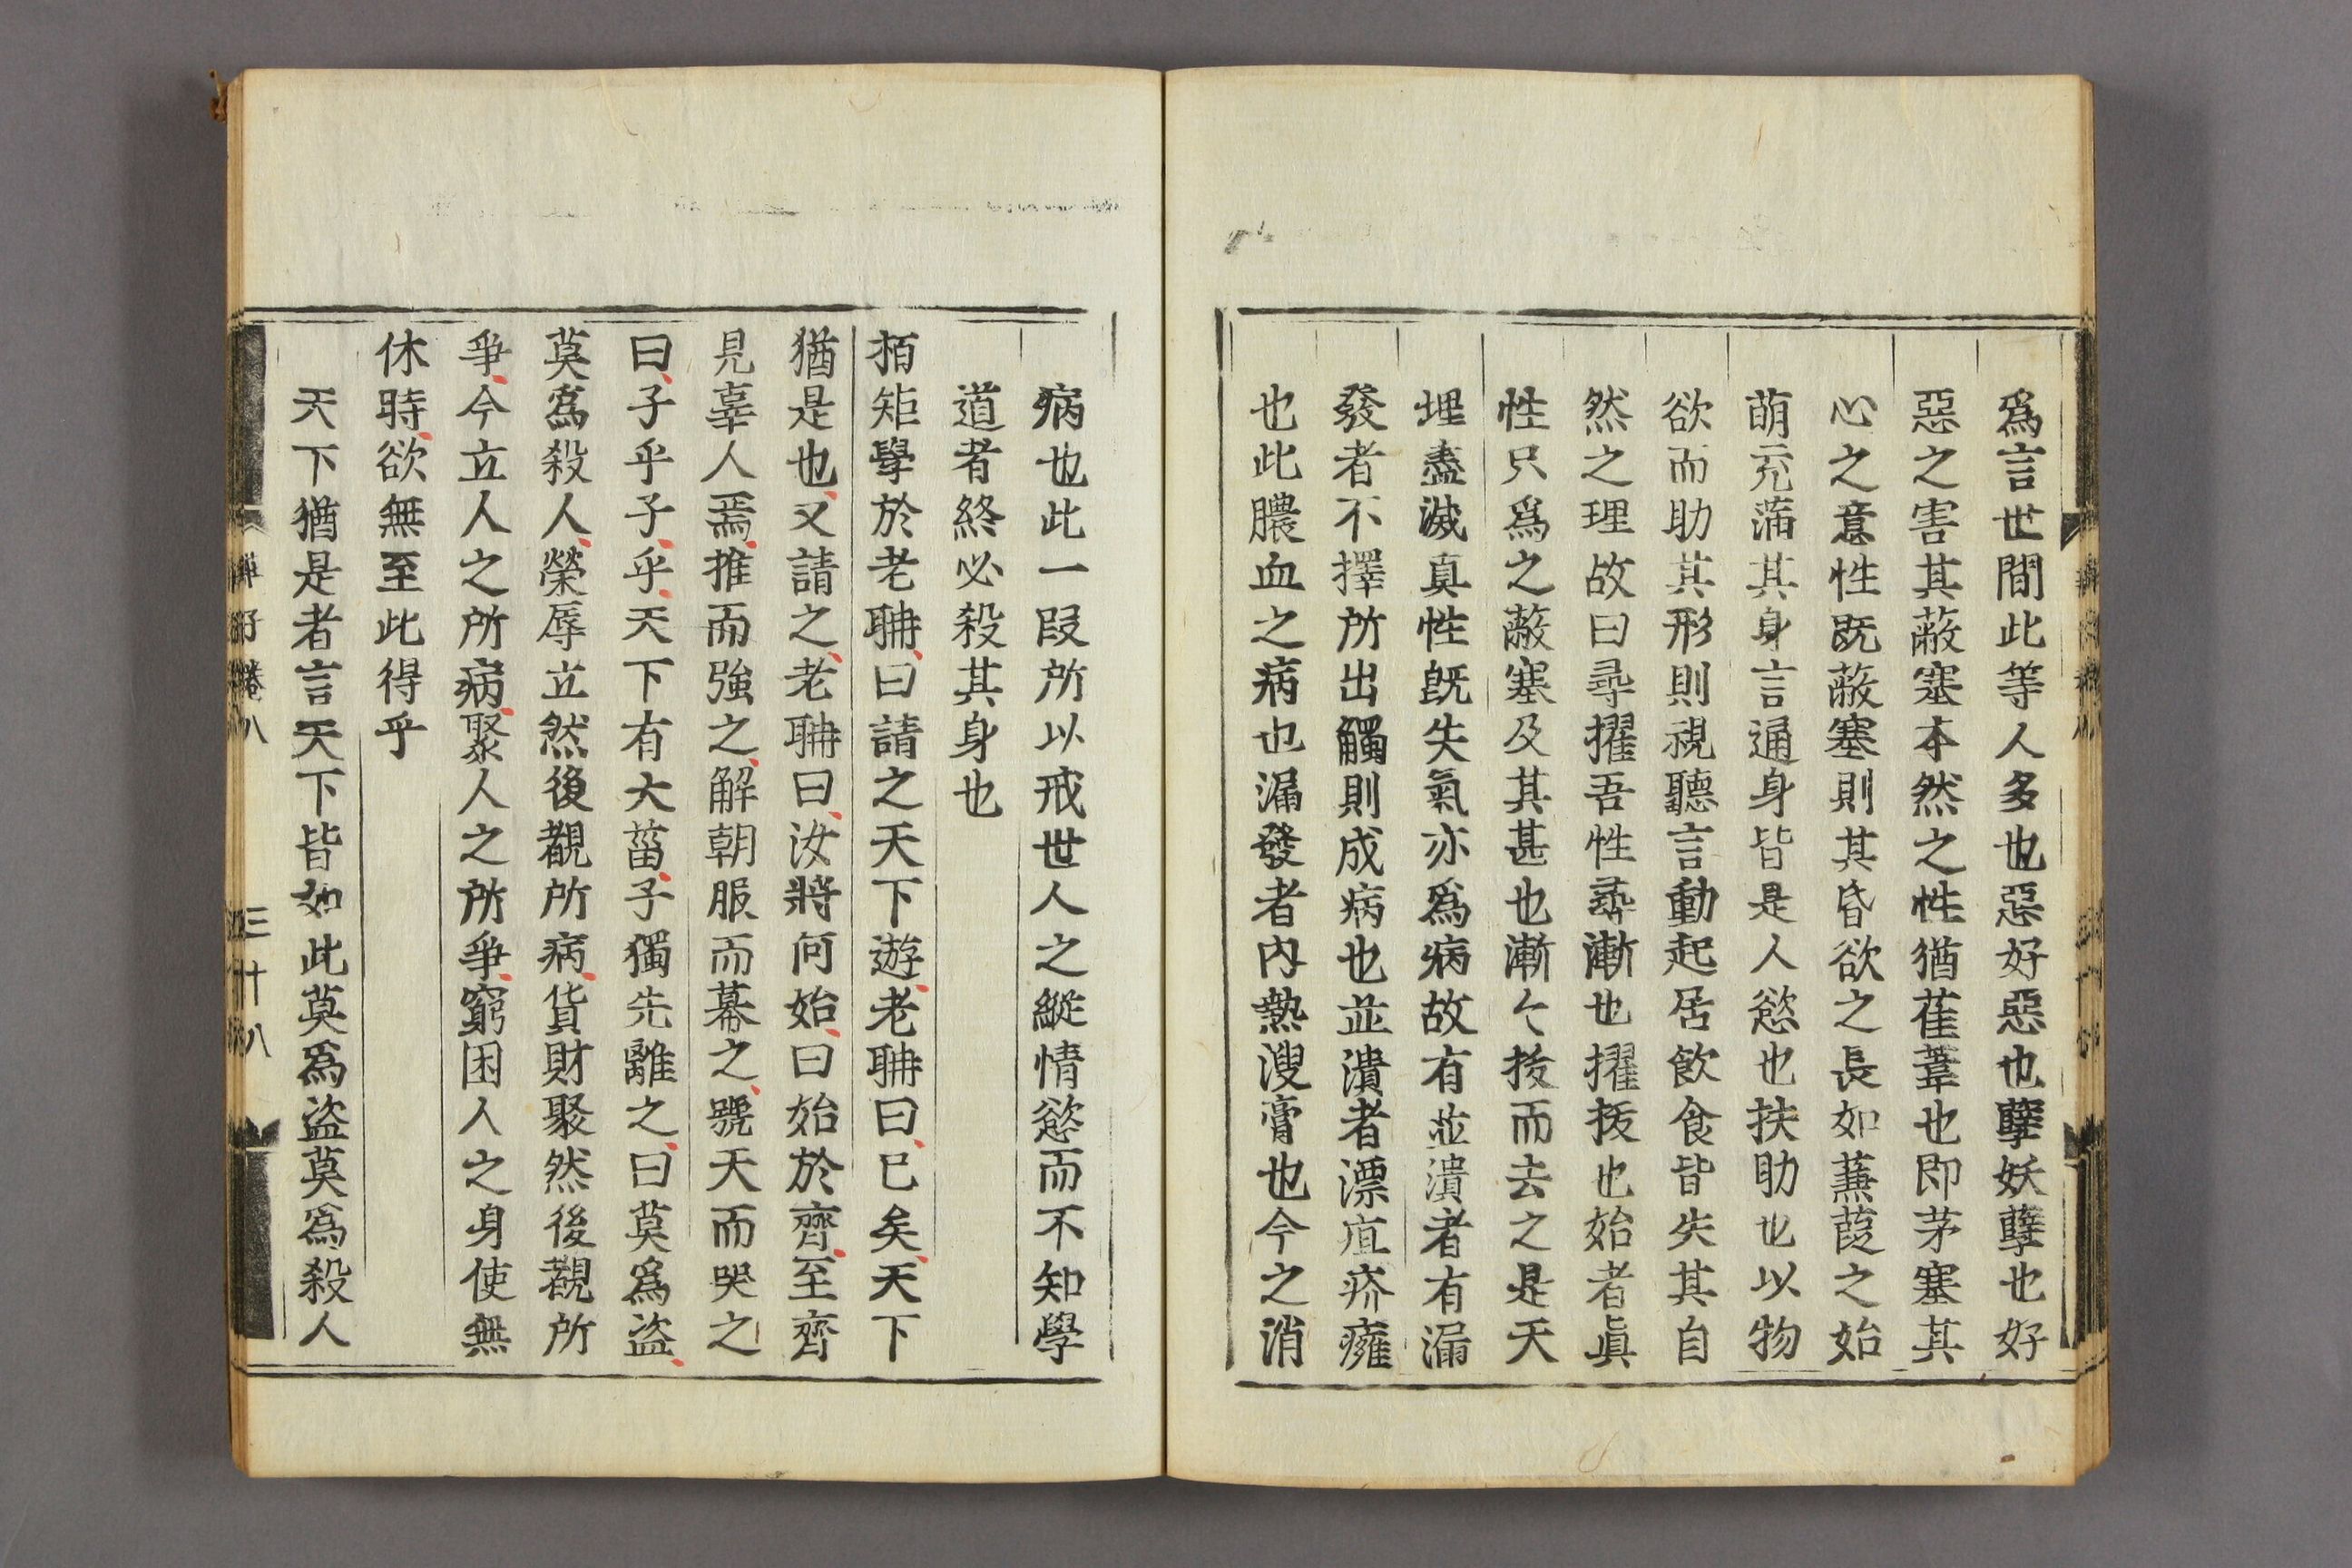 爲言世間此等人多也惡好惡也孽妖孽也好
惡之害其蔽塞本然之性猶萑葦也即茅塞其
心之意性既蔽塞則其昏欲之長如蒹葭之始
萌充滿其身言通身皆是人慾也扶助也以物
欲而助其形則視聽言動起居飲食皆失其自
然之理故曰尋擢吾性尋漸也擢拔也始者眞
性只爲之蔽塞及其甚也漸々拔而去之是天
埋盡滅真性既失氣亦爲病故有並潰者有漏
發者不擇所出觸則成病也並潰者漂疽疥癰
也此膿血之病也漏發者內熱溲膏也今之消
病也此一段所以戒世人之縱情慾而不知學
道者終必殺其身也
栢矩學於老聃曰請之天下遊老聃曰已矣天下
猶是也又請之老聃曰汝將何始曰始於齊至齊
見辜人焉推而強之解朝服而幕之號天而哭之
曰子乎子乎天下有大菑子獨先離之曰莫爲盜
莫爲殺人榮辱立然後覩所病貨財聚然後覩所
爭今立人之所病聚人之所爭窮困人之身使無
休時欲無至此得乎
天下猶是者言天下皆如此莫爲盜莫爲殺人
卷八
三十八